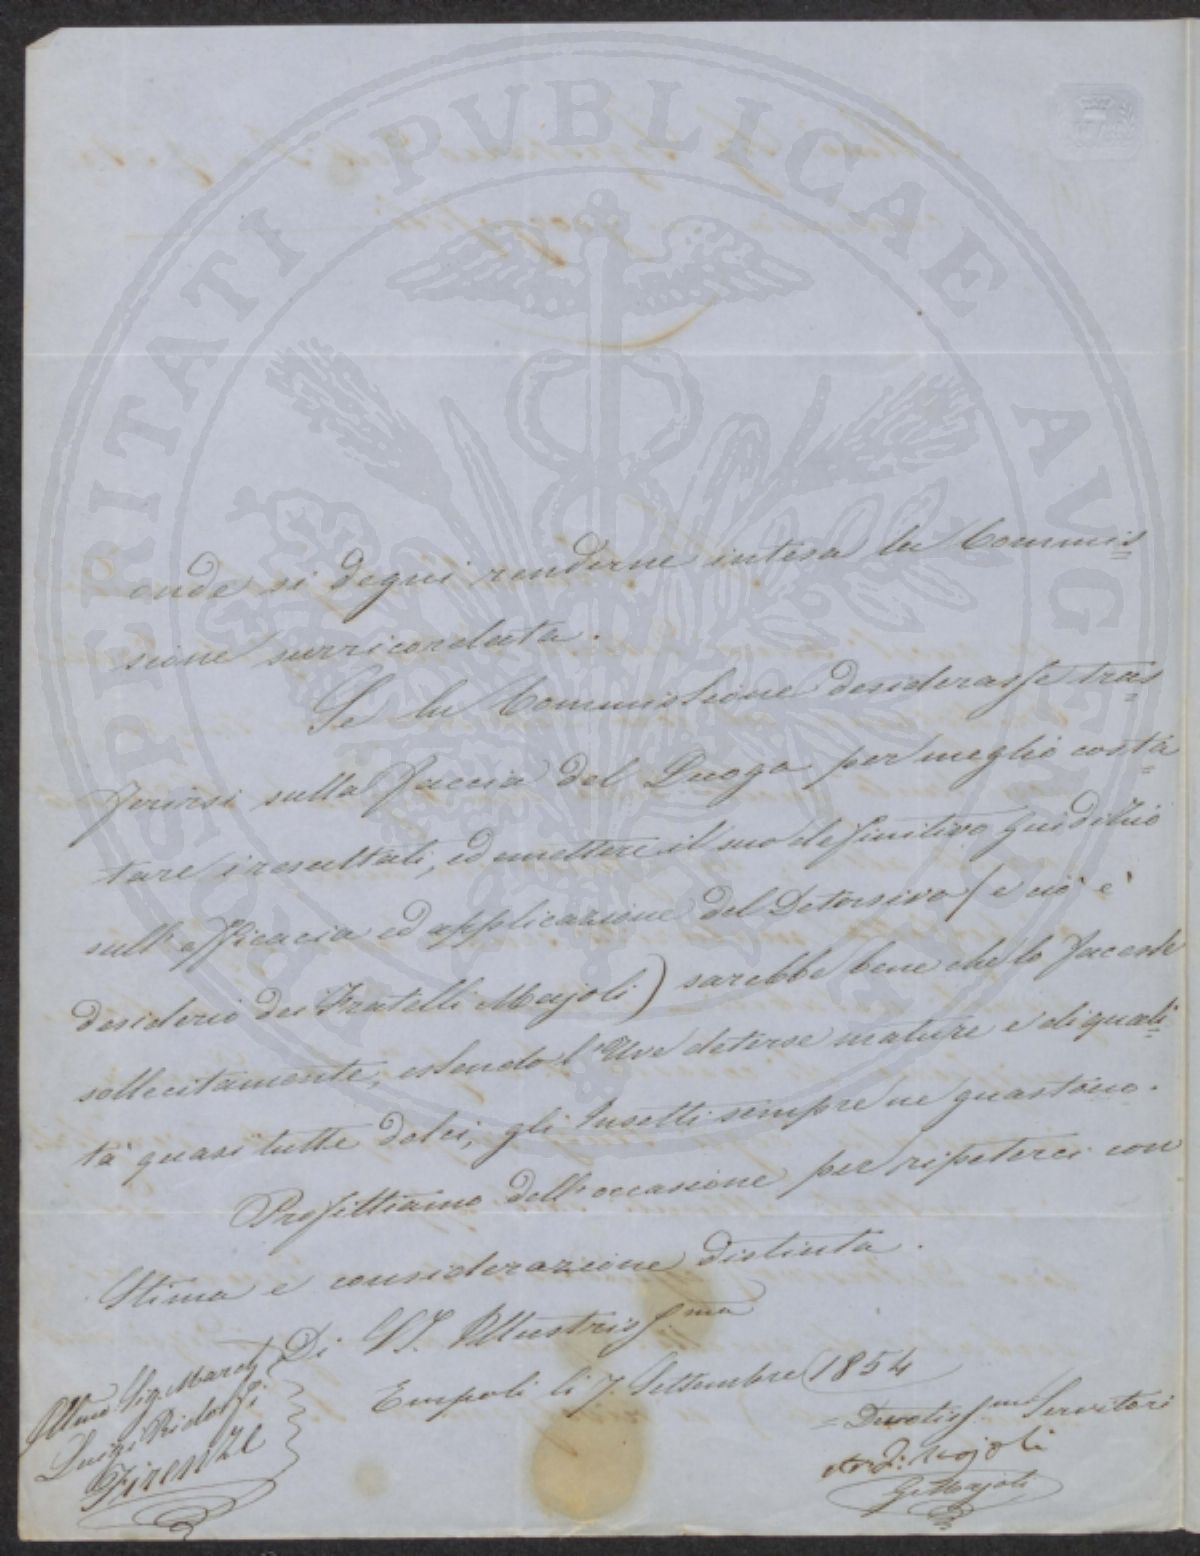 PROSPERITATI PUBLICAE AUGENDAE
onde si degni renderne intesa la Commis
sione surricordata.
Se la Commissione desiderasse tras
ferirsi sulla faccia del Luogo per meglio costa
tare i resultati, ed emettere il suo definitivo giudizio
sull'efficacia ed applicazione del Detersivo (e ciò è
desiderio dei Fratelli Majoli) sarebbe bene che lo facesse
sollecitamente, essendo l'Uve deterse mature e di quali
tà quasi tutte dolci, gli Insetti sempre ne guastano.
Profittiamo dell'occasione per ripeterci con
Stima e considerazione distinta.
Di VS. Illustriss.ma
Empoli li 7. Settembre 1854
Illmo Sig. March
Luigi Ridolfi
Firenze
= Devotiss.mi Servitori
Majoli
G. Majoli